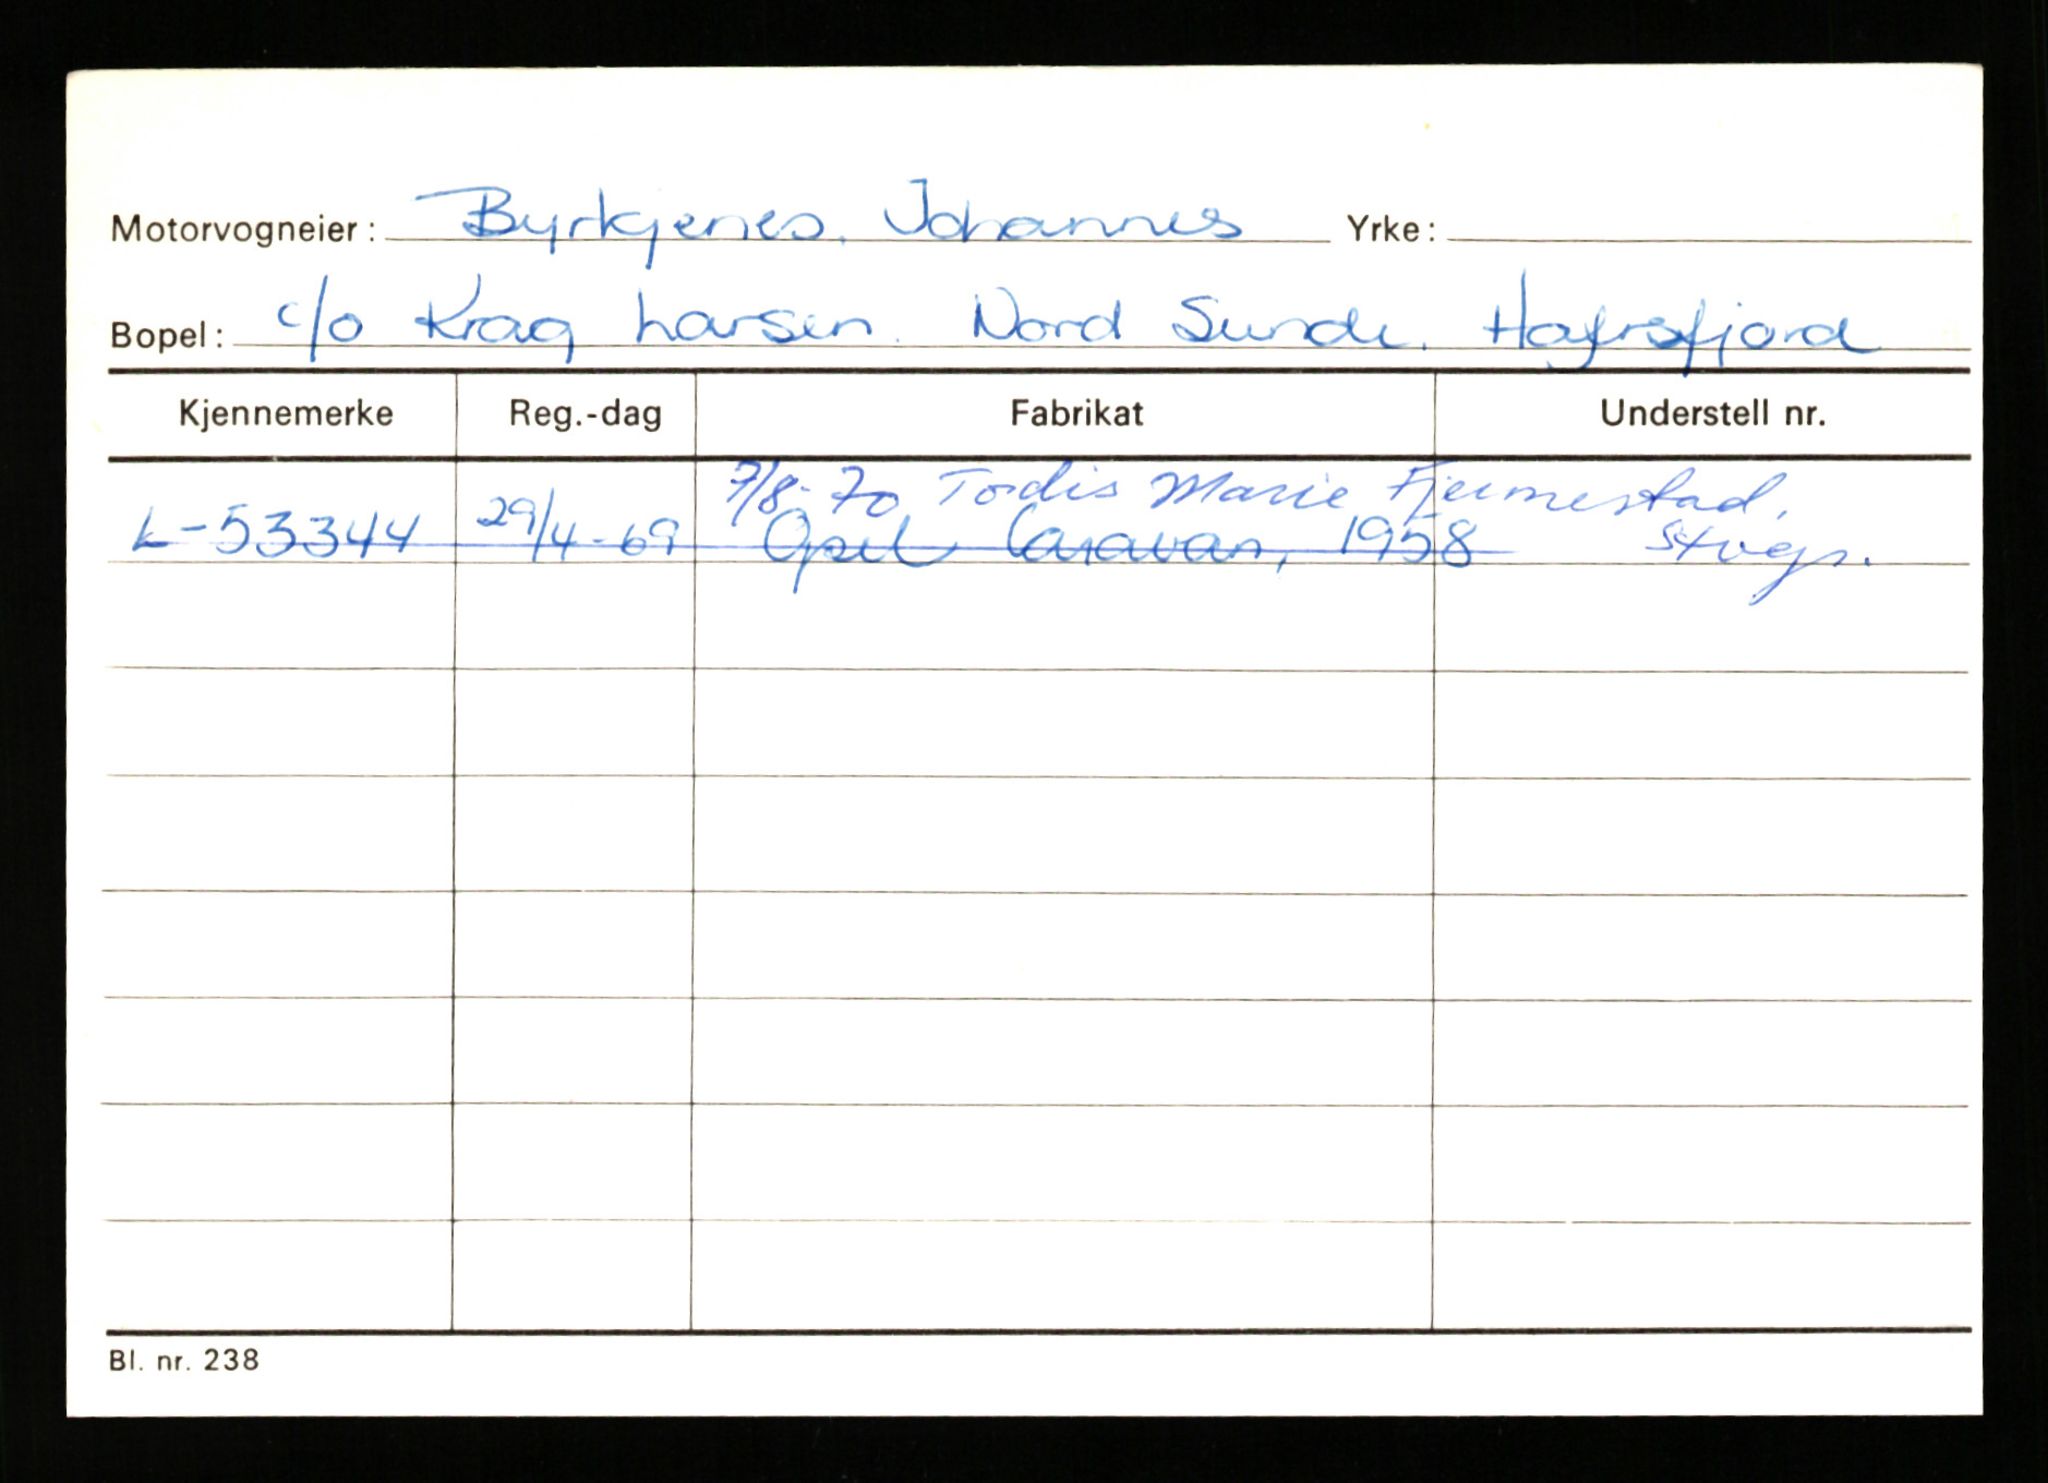 Motorvogneier: Byrkjenes, Johannes Yrke:
Bopel: c/o Krag Larsen. Nord Sunde. Hafrsfjord
Kjennemerke Reg.-dag Fabrikat Understell nr.
7/8-70 Tordis Marie Fjermestad,
L-53344 29/4-69 Opel Caravan, 1958 Stvgr.
Bl. nr. 238